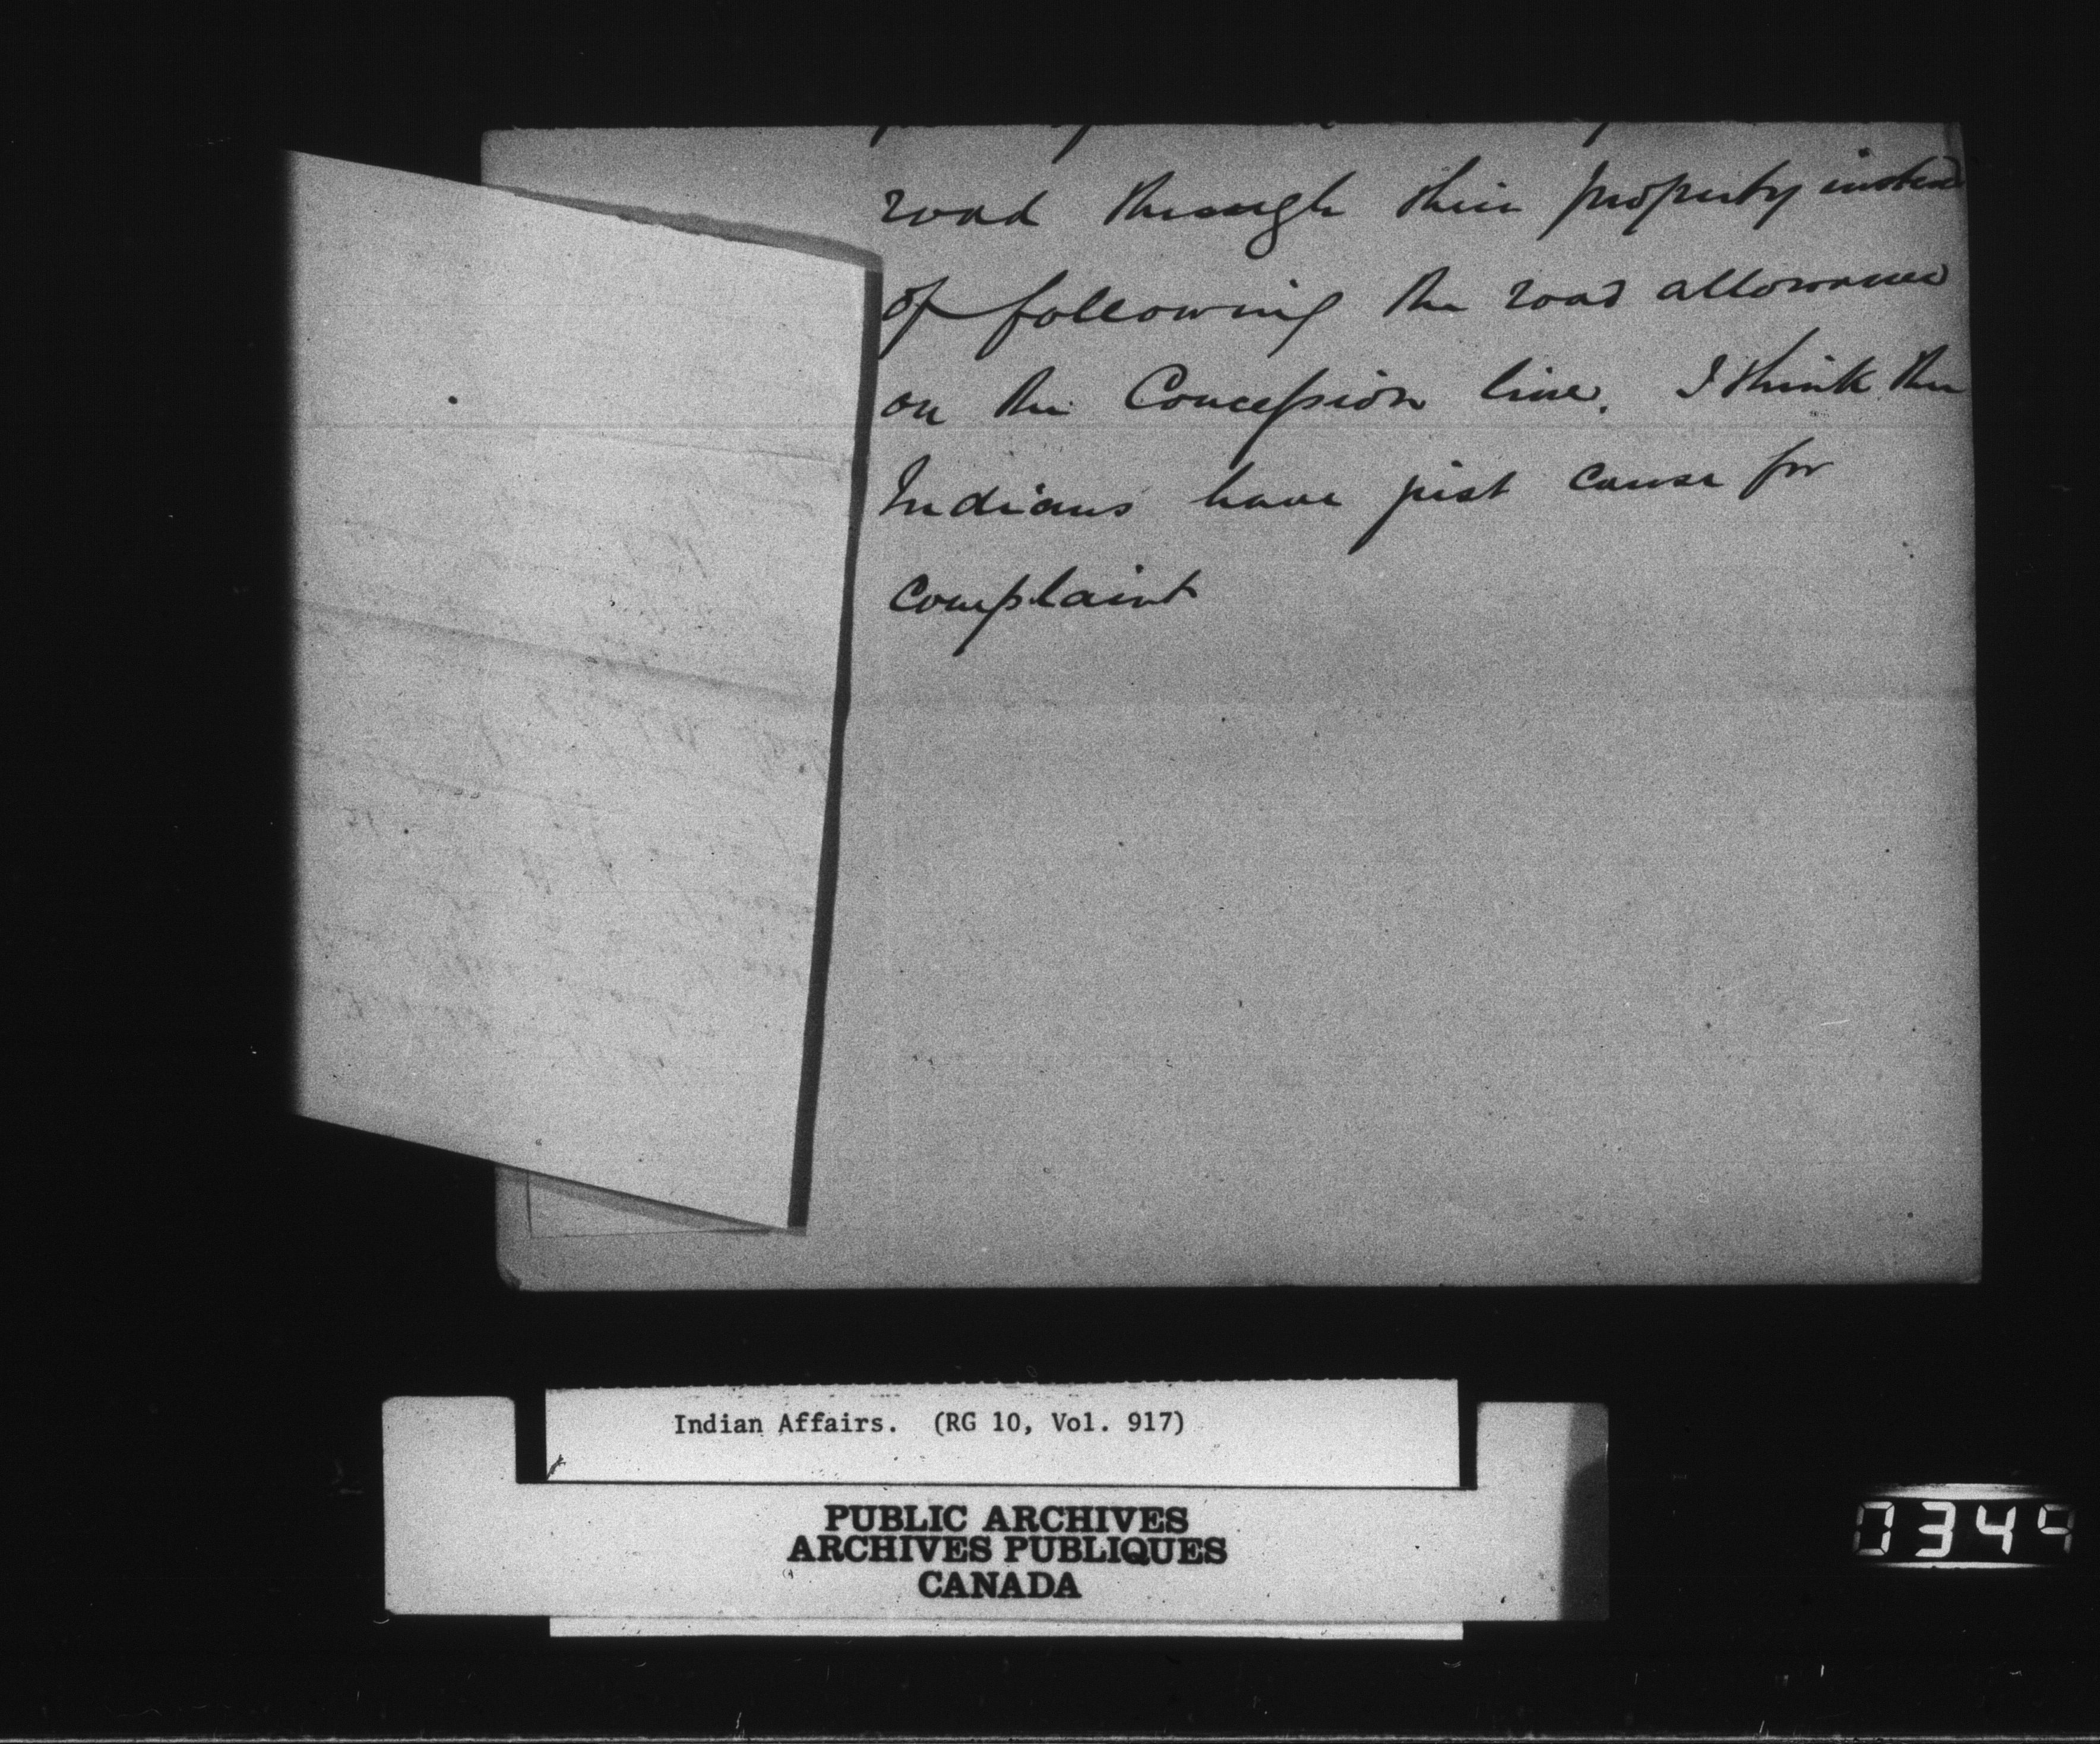 road through their property instead
of following the road allowance
on the Concession line. I think the
Indians have just cause for
complaint
Indian Affairs. (RG 10, Vol. 917)
PUBLIC ARCHIVES
ARCHIVES PUBLIQUES
CANADA
0349